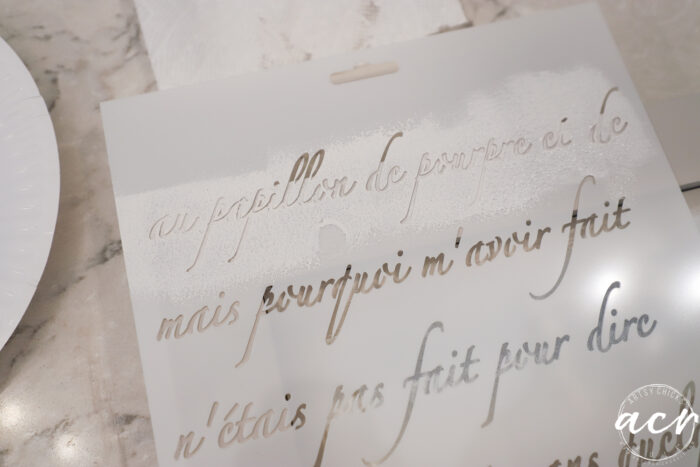 au papillon de pourpre ei de
mais pourquoi m'avoir fait
n'étais pas fait pour dire
ARTSY CHICKS
acr